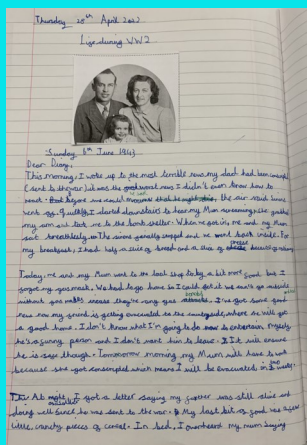 Thursday 28th April 2022
Life during WW2
Sunday 6th June 1943
Dear Diary,
This morning, I woke up to the most terrible news, my dad had been
(sent to the war) it was the worst news I didn't even know how to
react. before we could the air raid sirens
went off. Quickly, I darted downstairs to hear my Mum screaming. She grabbed
my arm and took me to the bomb shelter. When we got in, me and my Mum
sat breathlessly. The sirens stopped and we went back inside. For
my breakfast, I had half a slice of bread and a slice of cheese because of rations.
Today, me and my Mum went to the shop to buy a bit more food but I
forgot my gas mask. We had to go home so I could get it we can't go outside
without gas masks incase they're gas attacks. I've got some good
news now my friend is getting evacuated to the countryside, where he will get
a good home. I don't know what I'm going to do to entertain myself,
he's a funny person and I don't want him to leave. If it will ensure
he is safe though. Tomorrow morning my Mum will have to work
because she got conscripted which means I will be evacuated in
At I got a letter saying my father was still alive and
doing well since he was sent to the war. My last bit of food was a few
little, crunchy pieces of cereal. In bed, I overheard my mum saying